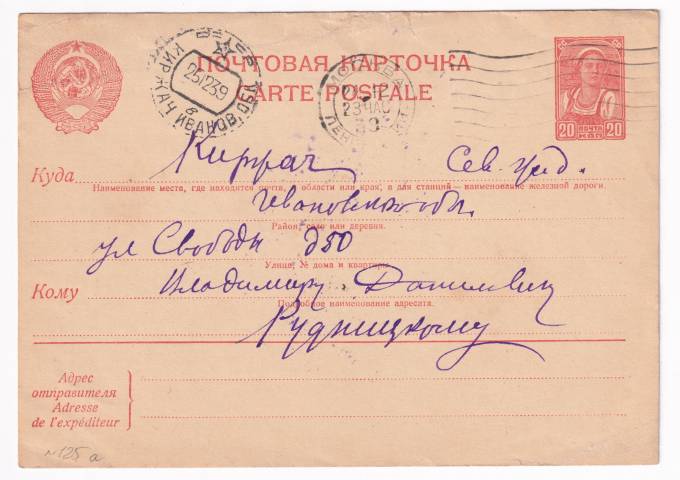 ПОЧТОВАЯ КАРТОЧКА
CARTE POSTALE
20 ПОЧТА 20
КОП
КИРЖАЧ ИВАНОВ
Киржач Сев.
Куда
Наименование места, где находится почта, и области или края, а для станций — наименование железной дороги.
Ивановской обл.
Район, село или деревня.
ул Свободы д50
Улица, № дома и квартиры.
Кому Владимиру Даниловичу
Подробное наименование адресата.
Рудницкому
Адрес
отправителя
Adresse
de l'expéditeur
№125а